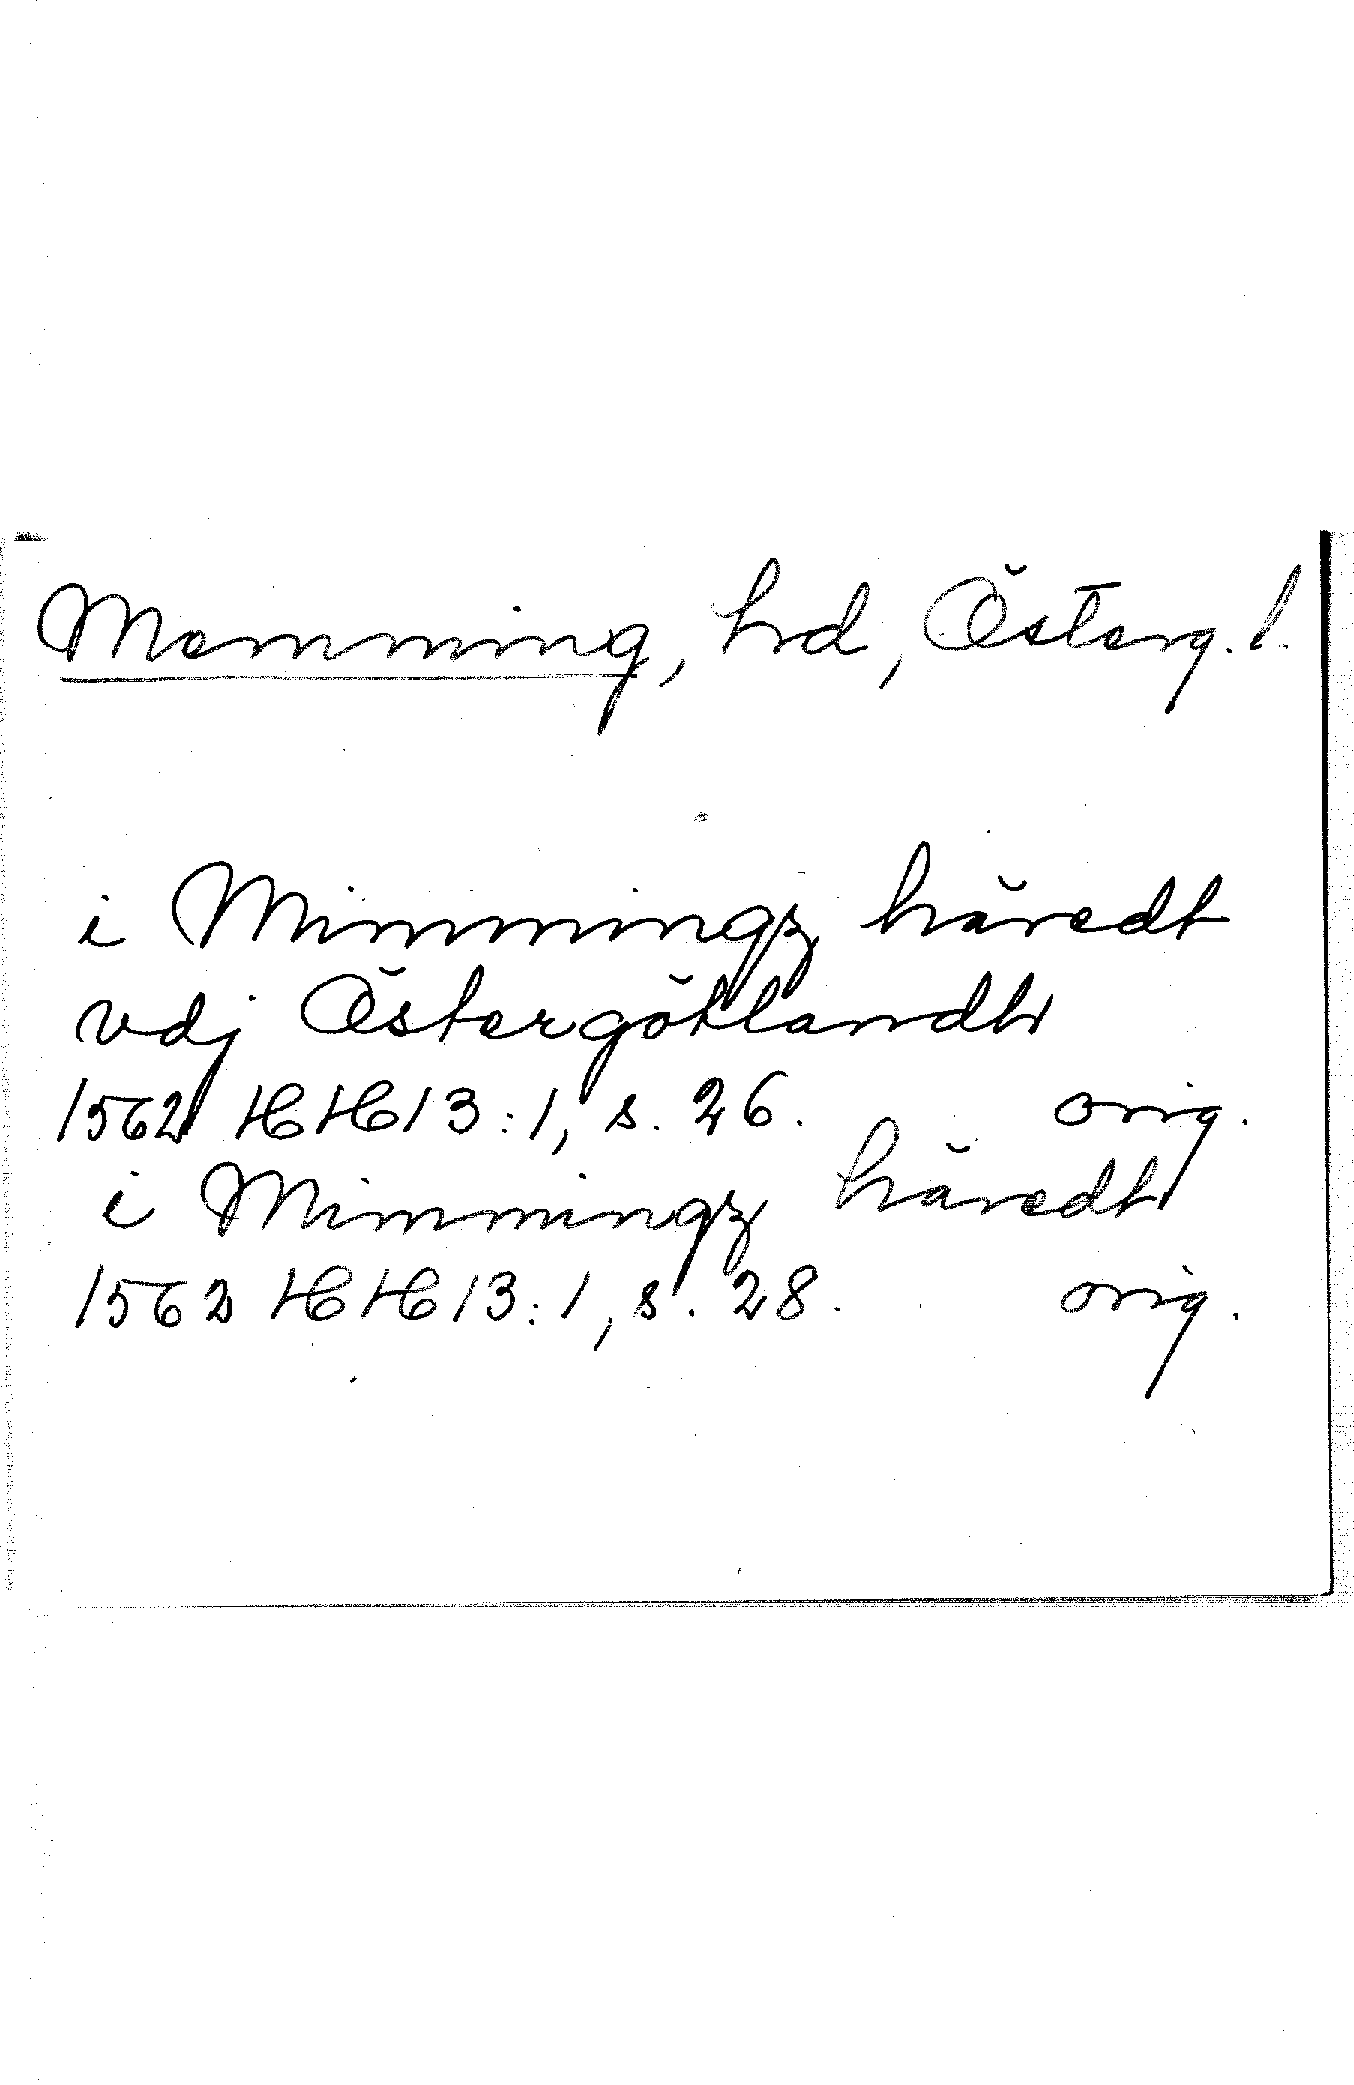 Memming, hd, Österg. l.
i Mimmingz häredt
vdj Östergötlandh
1562 HH 13:1, s. 26. orig.
i Mimmingz häredh
1562 HH 13:1, s. 28. orig.